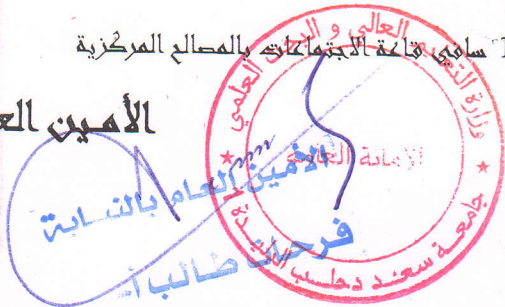 سا في قاعة الاجتماعات بالمصالح المركزية
الأمين الع
وزارة التعليم العالي و البحث العلمي
الأمانة العامة
جامعة سعد دحلب البليدة
الأمين العام بالنيابة
فرحات طالب أ.